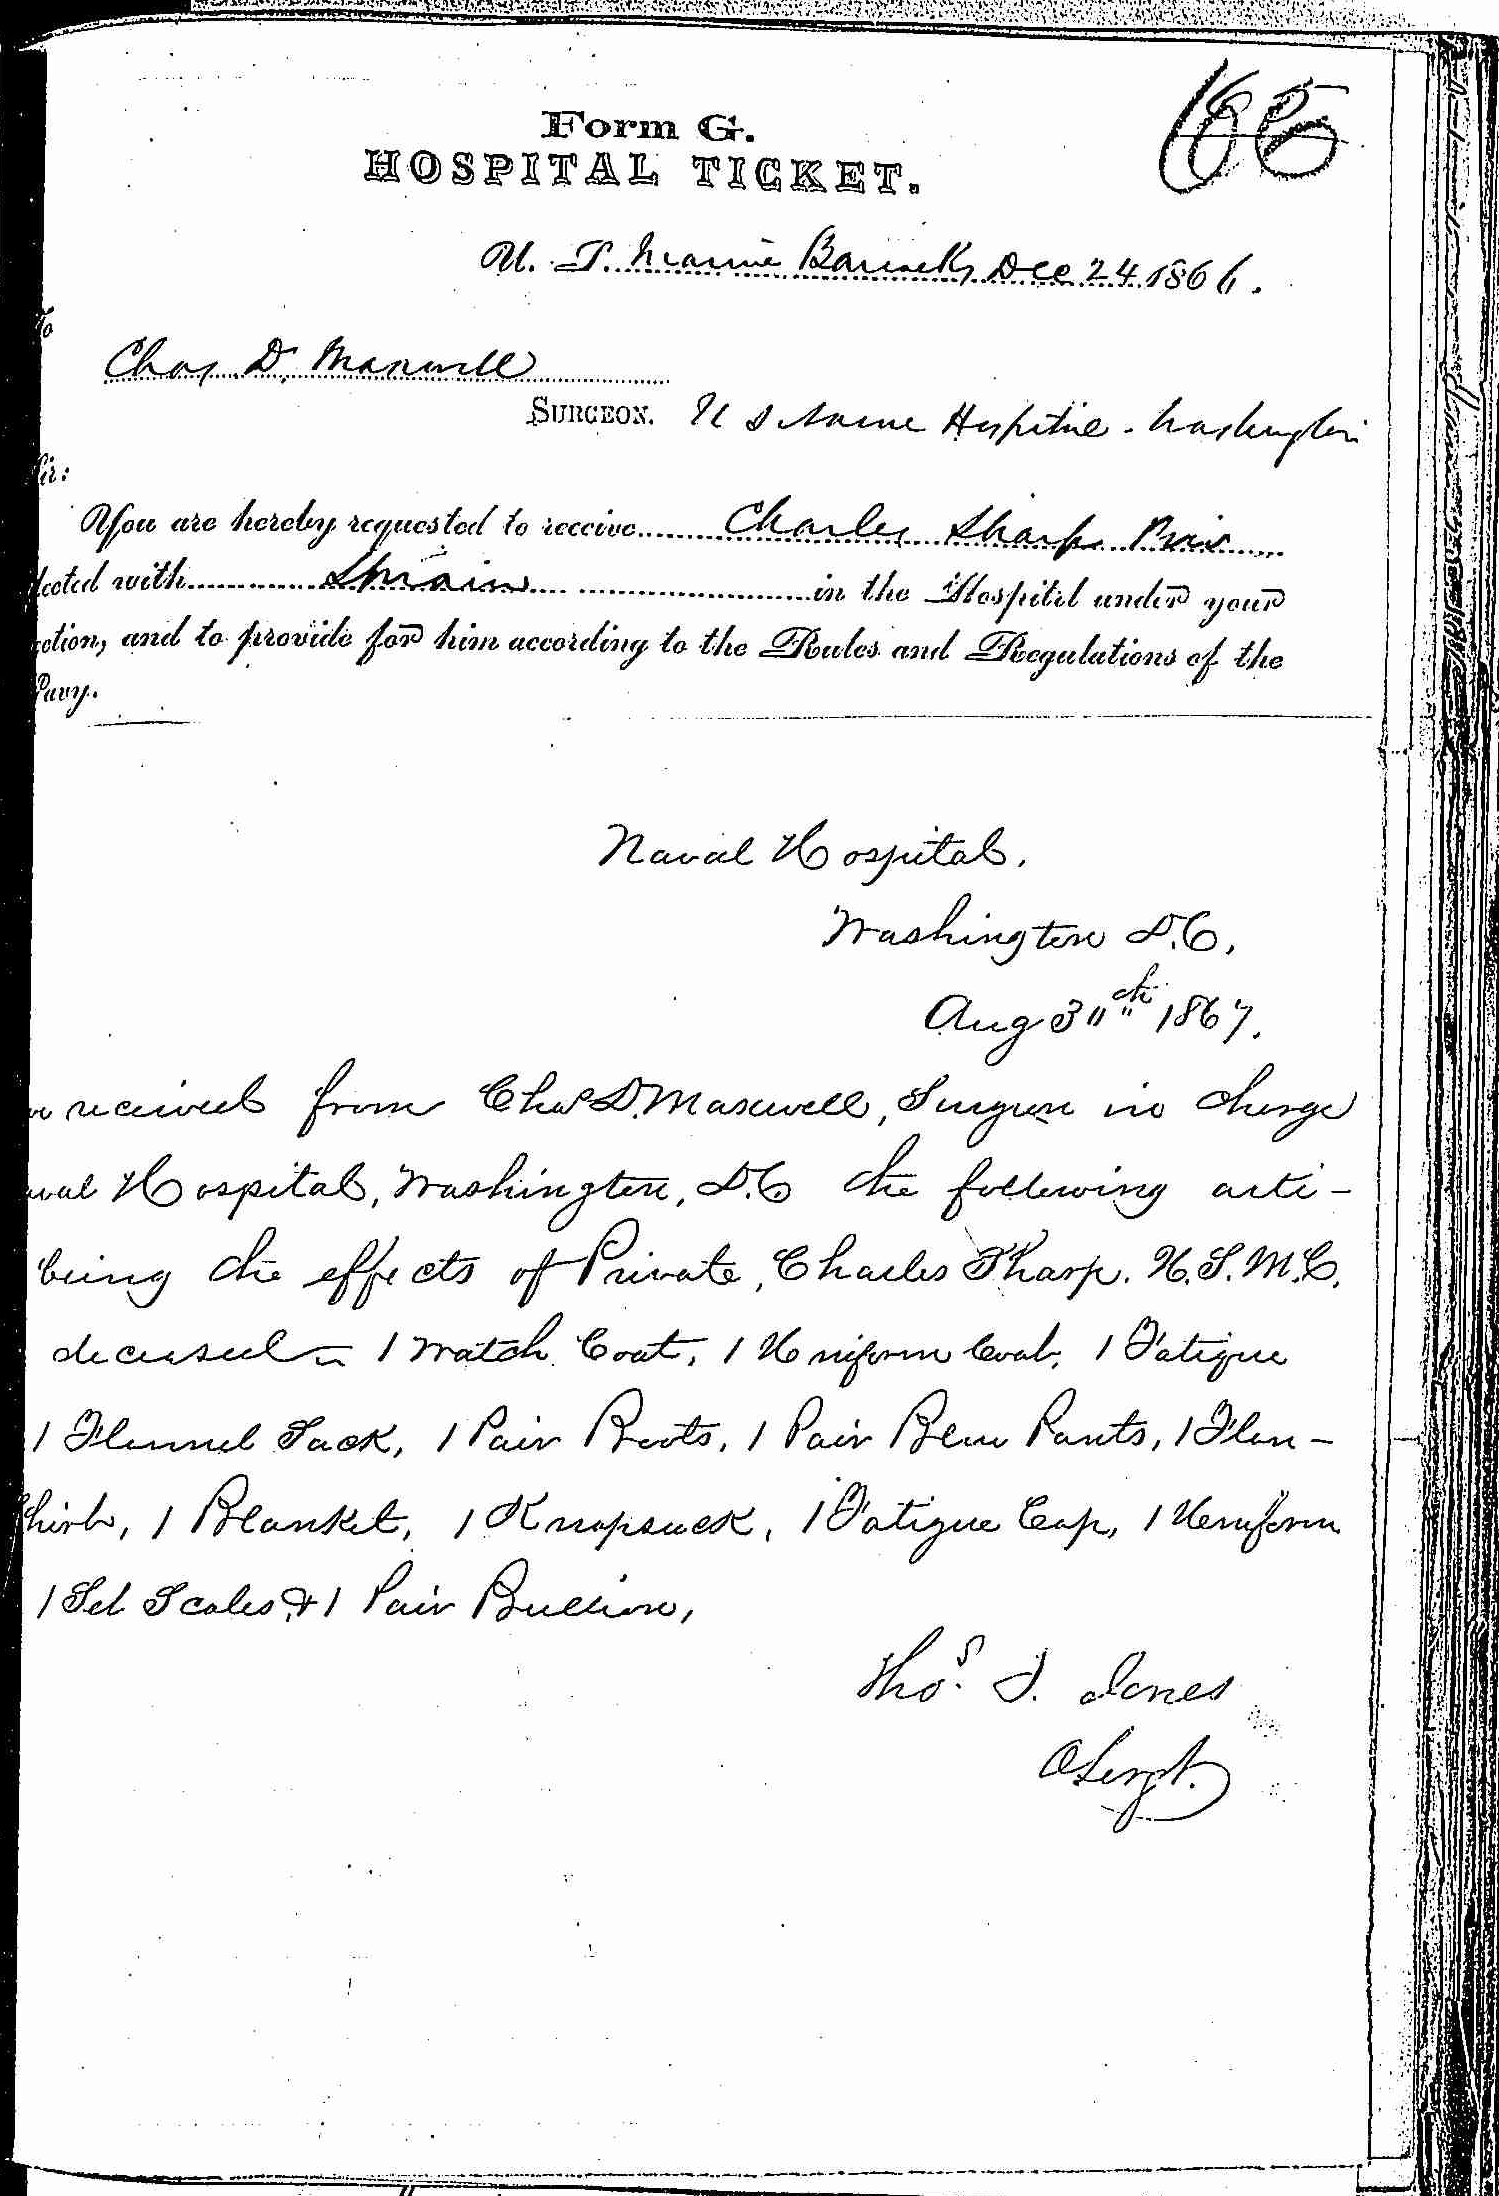 Form G.
HOSPITAL TICKET.
U. S. Marine Barracks Dec 24 1866.
To
Chas D. Maxwell
SURGEON. U S Naval Hospital - Washington
Sir:
You are hereby requested to receive Charles Sharp Priv
lected with in the Hospital under your
ction, and to provide for him according to the Rules and Regulations of the
Navy.
Naval Hospital,
Washington D.C,
Aug 30th 1867.
received from Chas D. Maxwell, Surgeon in charge
aval Hospital, Washington, D.C the following arti-
being the effects of Private, Charles Sharp. U.S.M.C.
deceased - 1 Watch Coat, 1 Uniform Coat, 1 Fatigue
1 Flannel Sack, 1 Pair Boots, 1 Pair Blue Pants, 1 Flan-
Shirt, 1 Blanket, 1 Knapsack, 1 Fatigue Cap, 1 Uniform
1 Set Scales, & 1 Pair Bullion,
Thos. J. Jones
O Sergt.